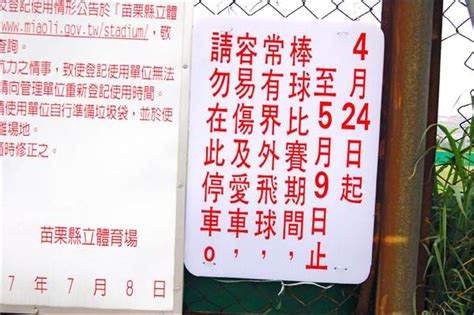 及登記使用情形公告於『苗栗縣立體
www.miaoli.gov.tw/stadium/，敬
查詢。
抗力之情事，致使登記使用單位無法
請向管理單位重新登記使用時間。
請使用單位自行準備垃圾袋，並於使
離場地。
隨時修正之。
苗栗縣立體育場
7年7月8日
4月24日起
至5月9日止
棒球比賽期間，
常有界外飛球，
容易傷及愛車，
請勿在此停車。